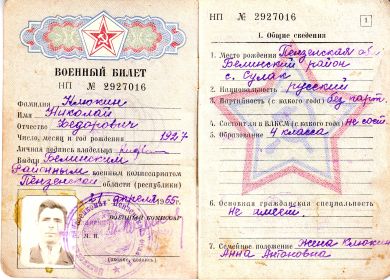 ВОЕННЫЙ БИЛЕТ
НП № 2927016
Фамилия Клюкин
Имя Николай
Отчество Федорович
Число, месяц и год рождения 1927
Личная подпись владельца
Выдан Белинским
Районным военным комиссариатом
Пензенской области (республики)
21 апреля 1965 г.
ВОЕННЫЙ КОМИССАР
М. П.
НП № 2927016
1
I. Общие сведения
1. Место рождения Пензенская об.
Белинский район
с. Сулак
2. Национальность русский
3. Партийность (с какого года) без парт.
4. Состоит ли в ВЛКСМ (с какого года) не сост.
5. Образование 4 класса
6. Основная гражданская специальность
не имеет.
7. Семейное положение Жена Клюкина
Анна Антоновна